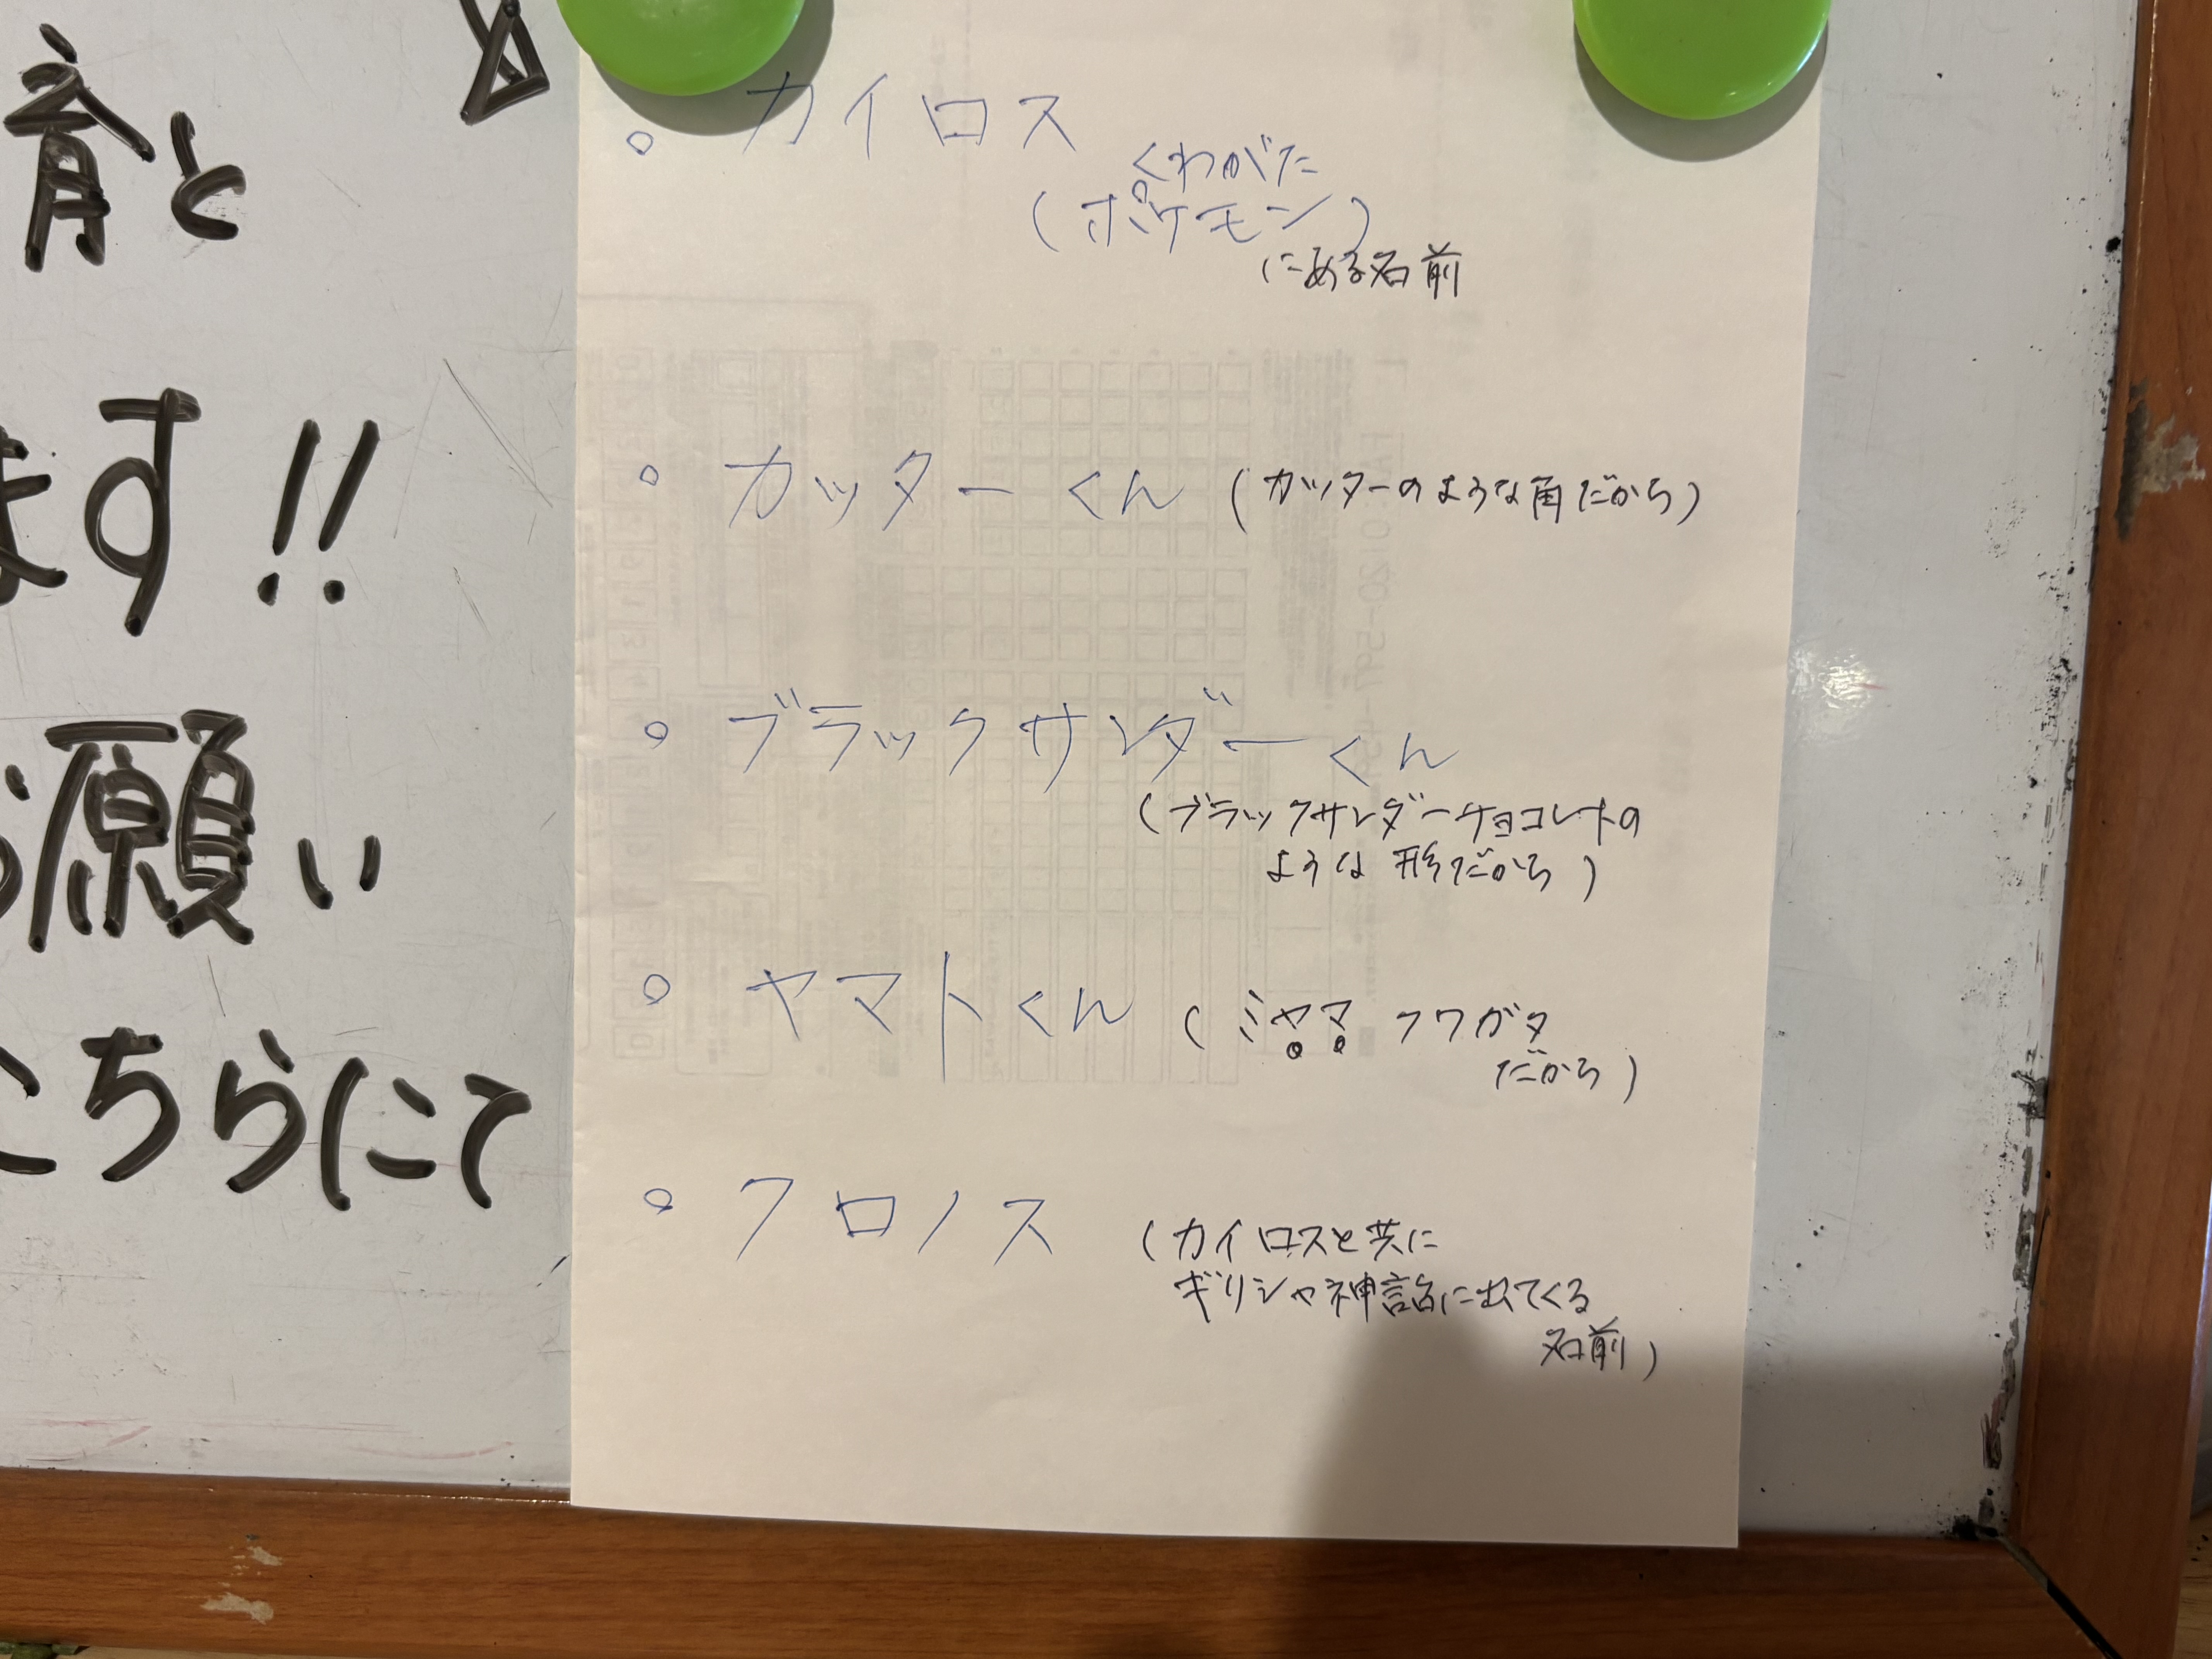 育と
ます!!
お願い
こちらにて
。カイロス
くわがた
(ポケモン)
にある名前
。カッターくん (カッターのような角だから)
。ブラックサンダーくん
(ブラックサンダーチョコレートの
ような形だから)
。ヤマトくん (ミヤマクワガタ
だから)
。クロノス (カイロスと共に
ギリシャ神話に出てくる
名前)